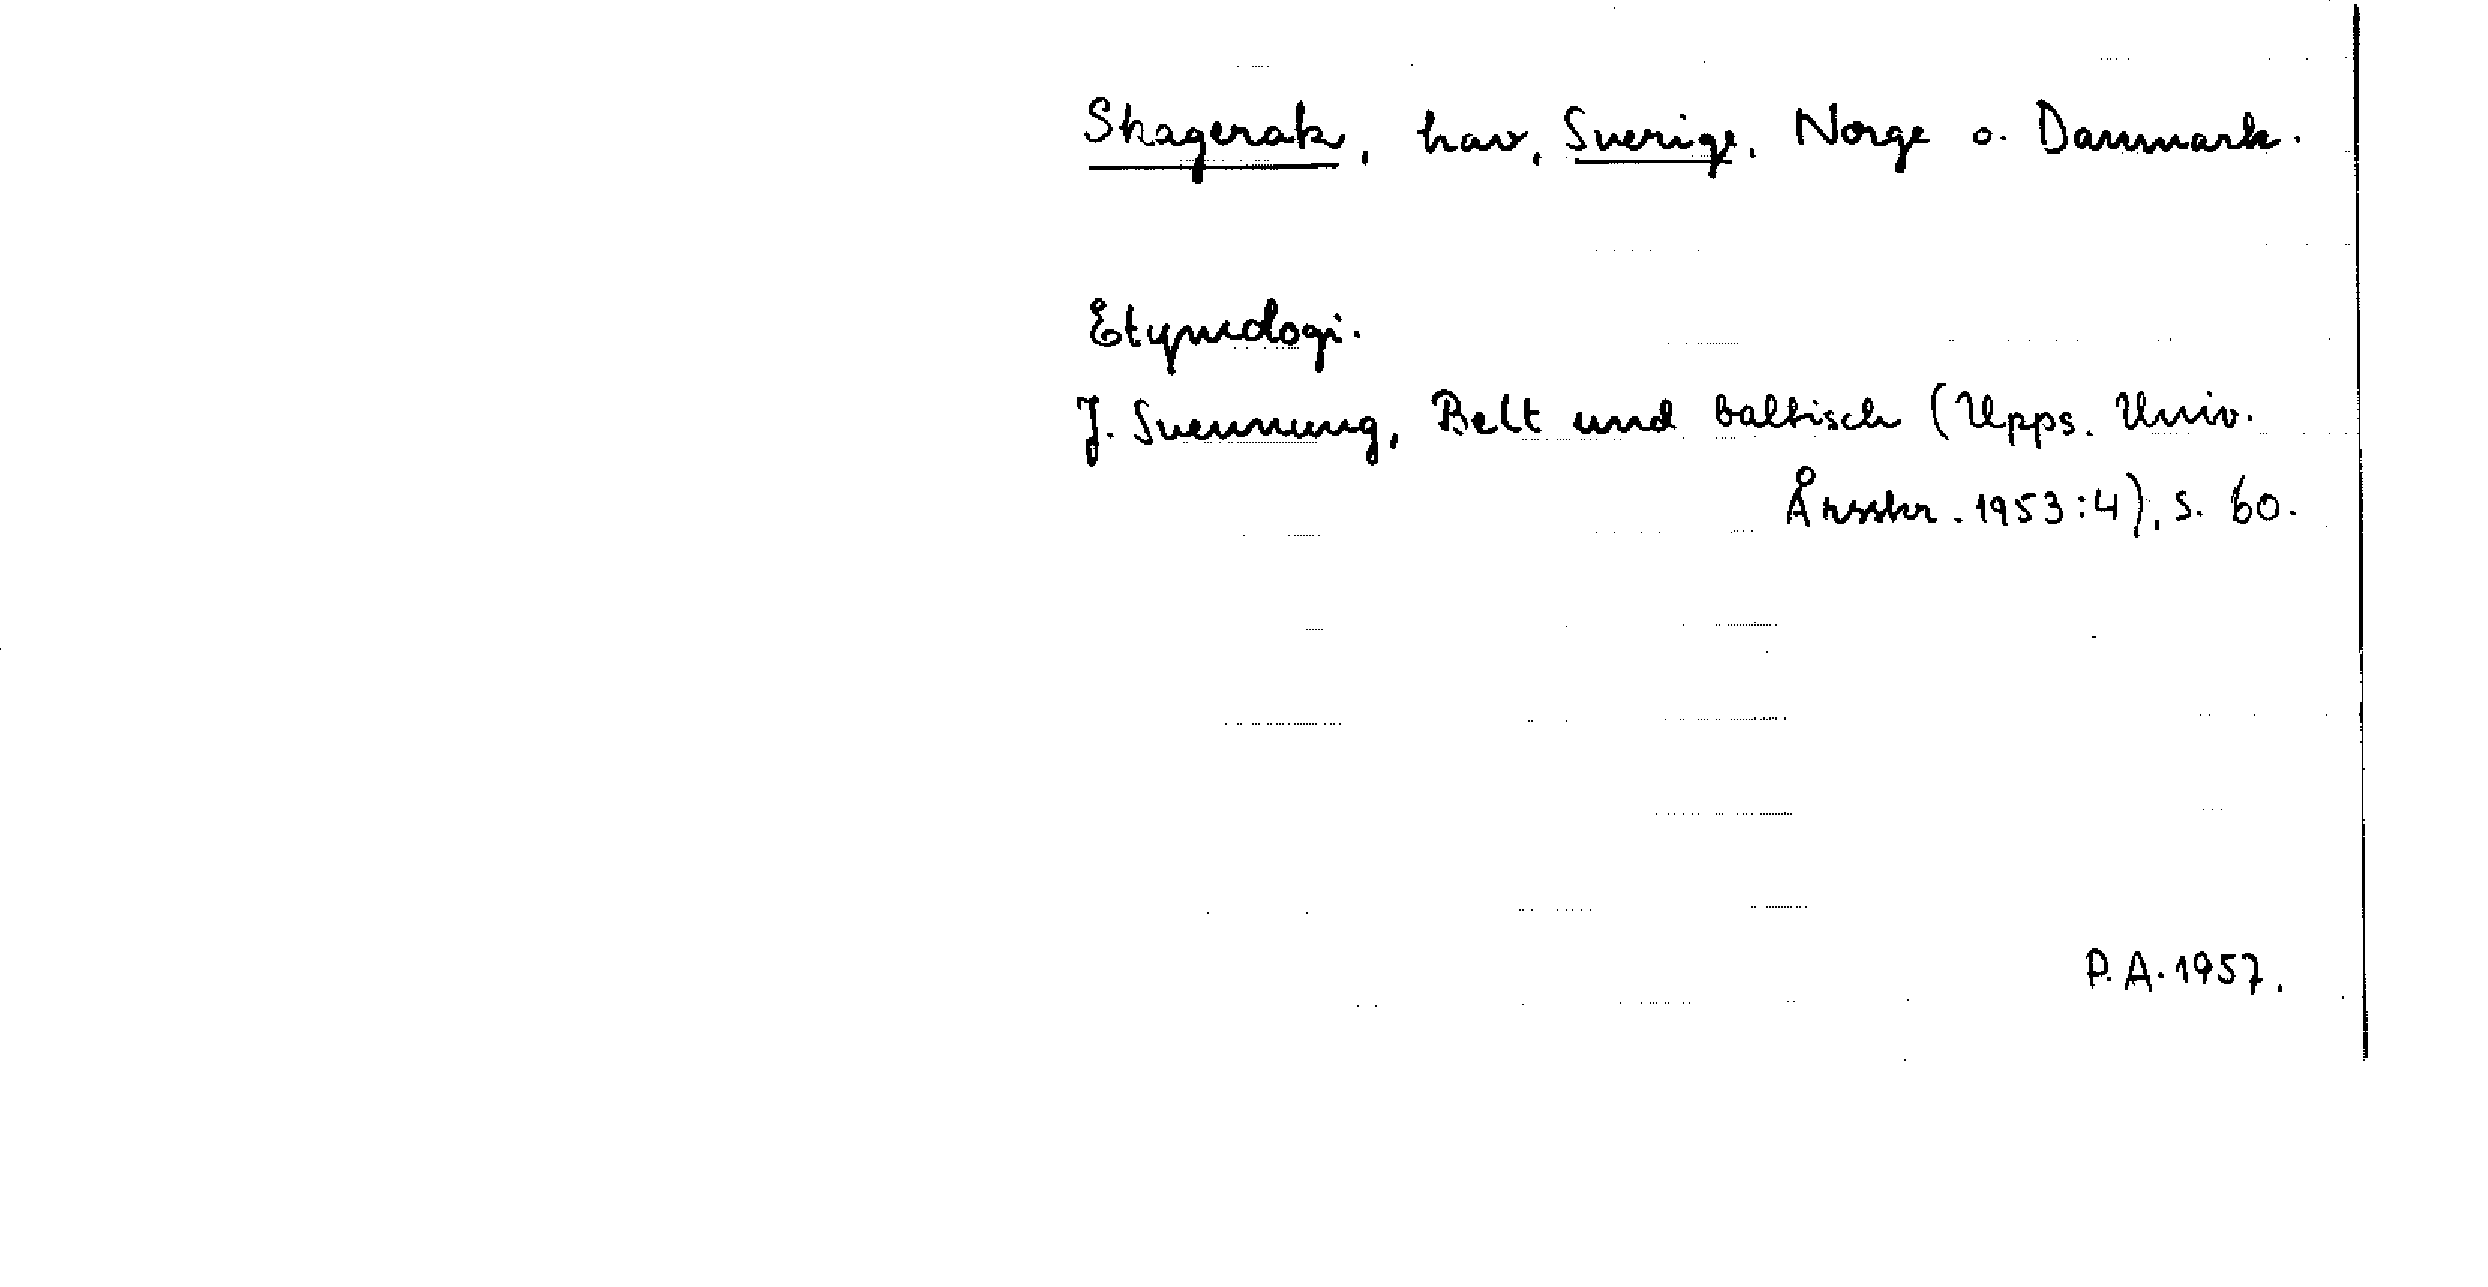 Skagerak, hav, Sverige, Norge o. Danmark.
Etymologi.
J. Svennung, Belt und baltisch (Upps. Univ.
Årsskr. 1953:4), s. 60.
P.A. 1957.